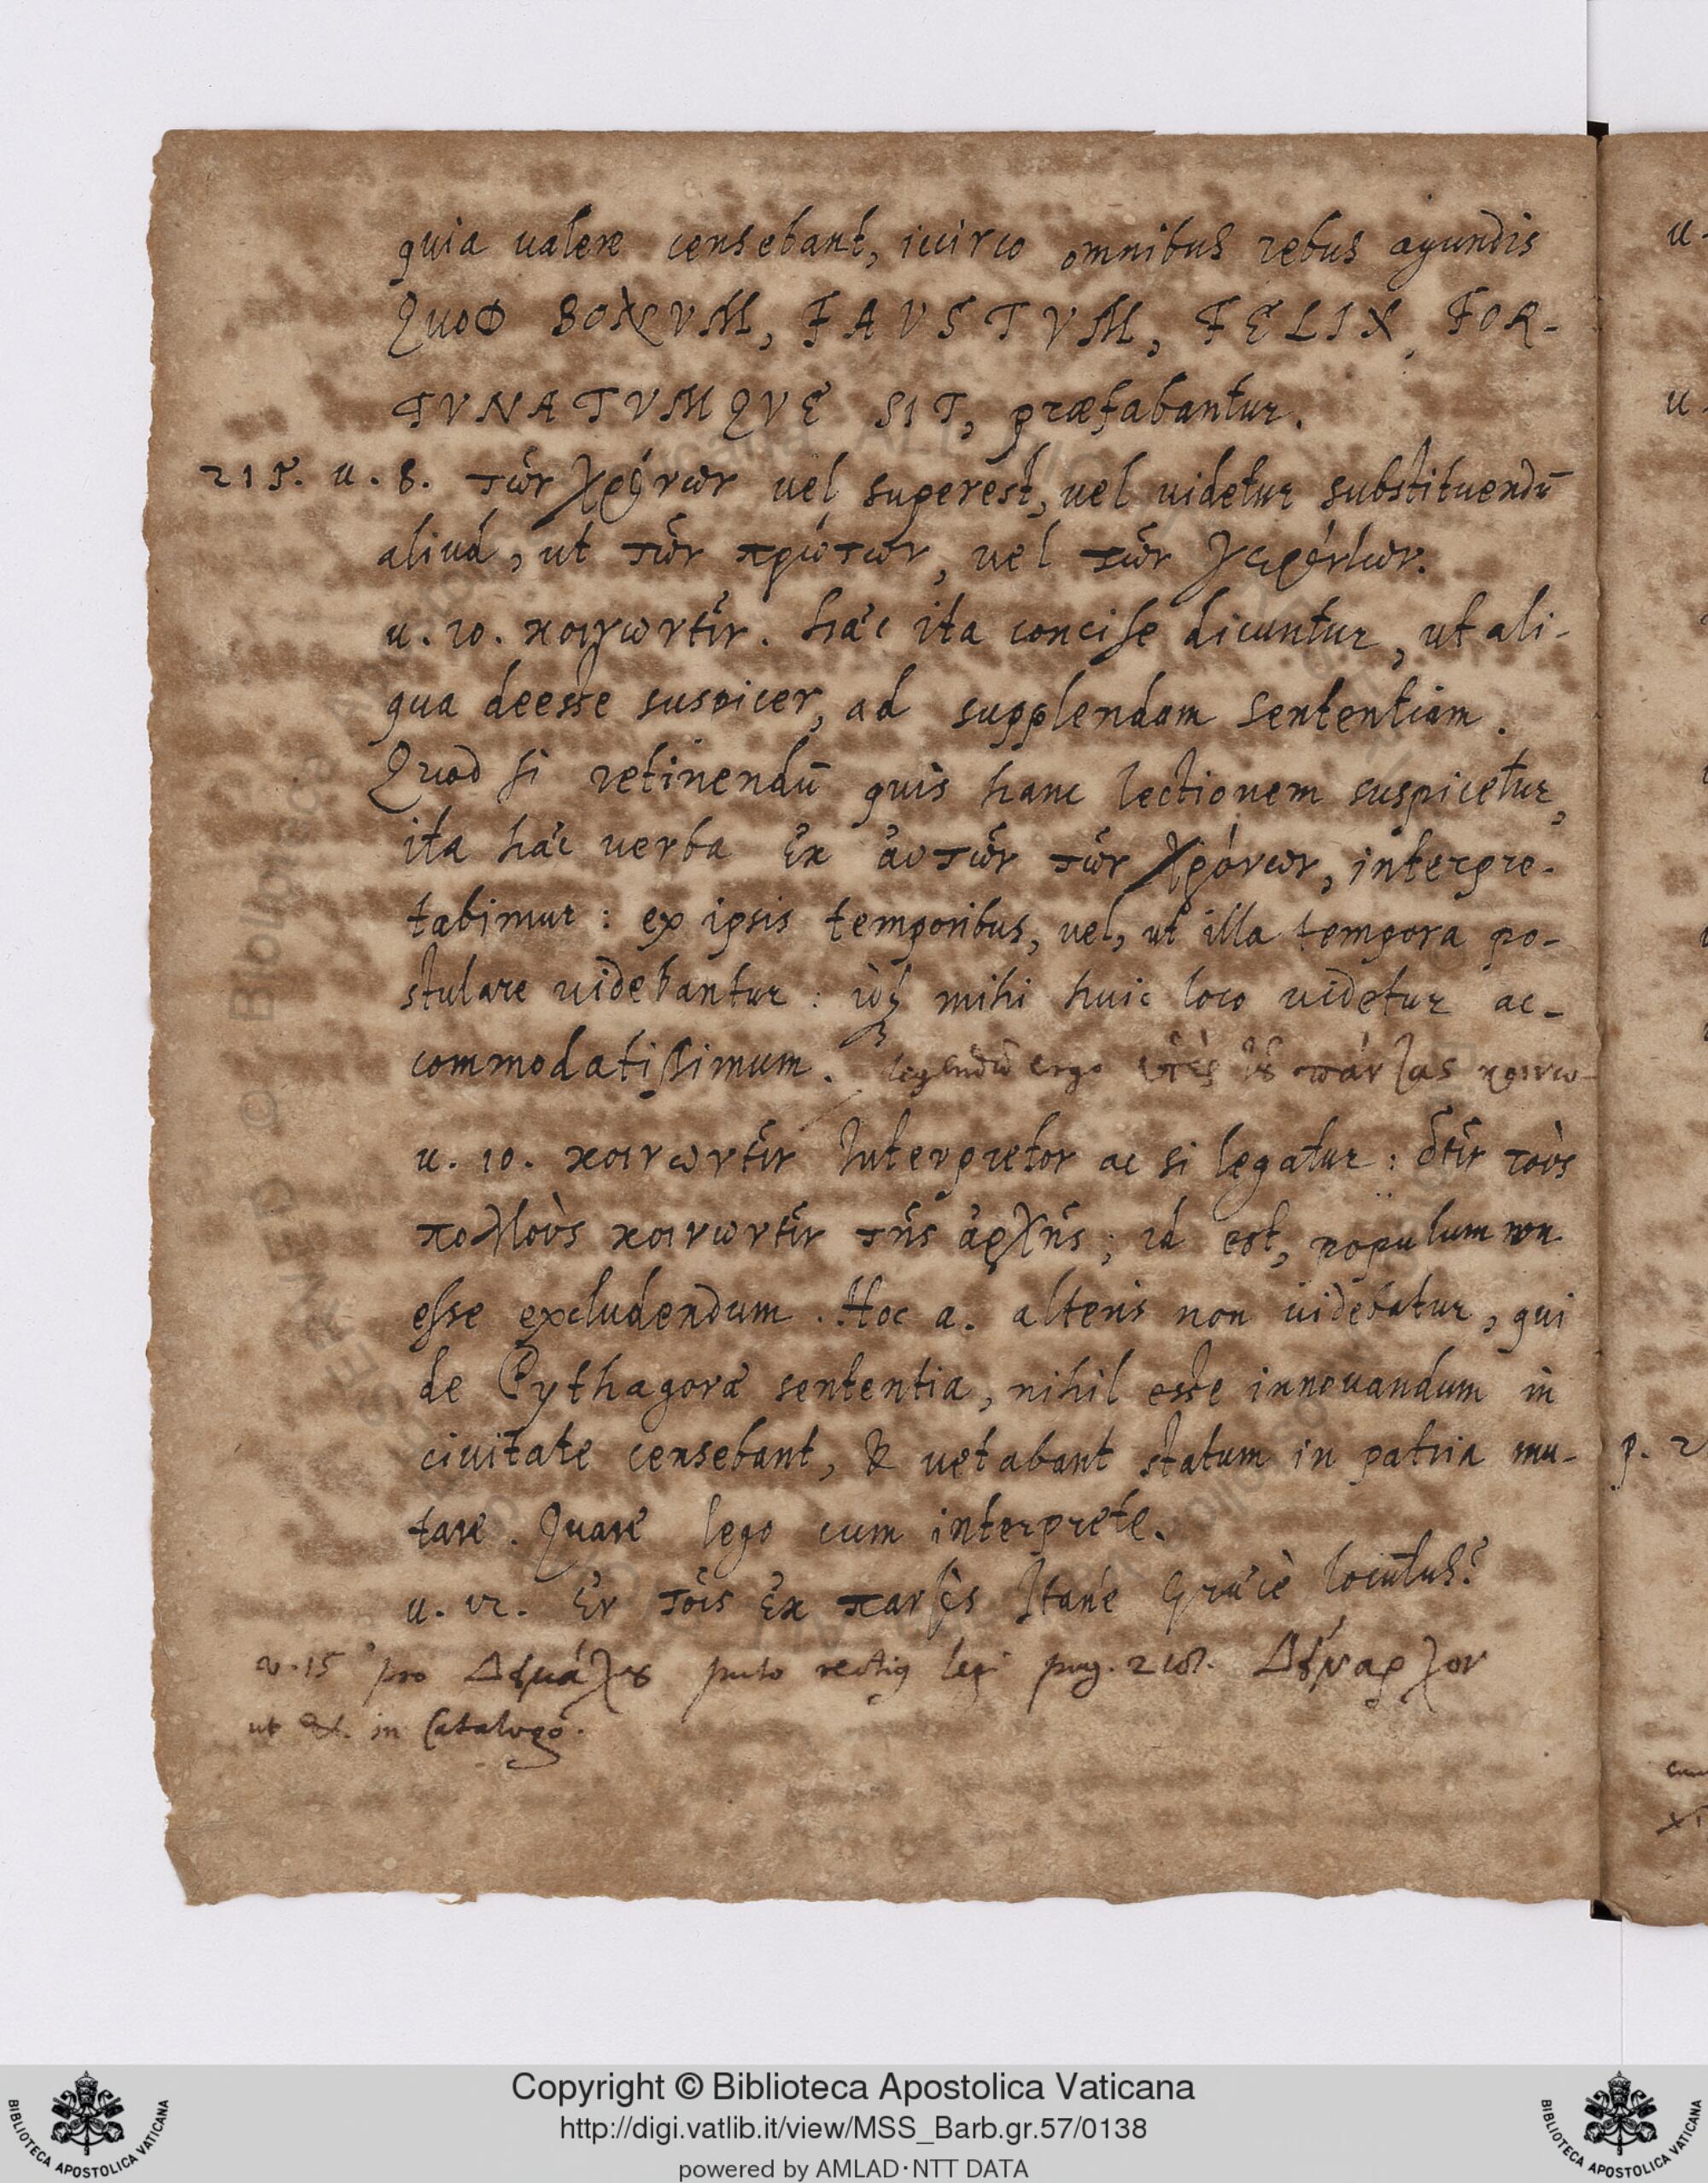 quia ualere censebant, iccirco omnibus rebus agundis
QuoD BONVM, FAVSTVM, FELIX, FOR-
TVNATVMQVE SIT, præfabantur.
215. u. 8. τῶν χρόνων uel superest, uel uidetur substituendū
aliud, ut τῶν πρώτων, uel τῶν γερόντων.
u. 10. κοινωνεῖν. hæc ita concise dicuntur, ut ali-
qua deesse suspicer, ad supplendam sententiam.
Quod si retinendū quis hanc lectionem suspicetur,
ita hæc uerba ἐκ αὐτῶν τῶν χρόνων, interpre-
tabimur: ex ipsis temporibus, uel, ut illa tempora po-
stulare uidebantur: mihi huic loco uidetur ac-
commodatissimum. legendū ergo πάντας κοινω
u. 10. κοινωνεῖν Interpretor ac si legatur: δεῖν τοὺς
πολλοὺς κοινωνεῖν τῆς ἀρχῆς; id est, populum non
esse excludendum. Hoc a. alteris non uidebatur, qui
de Pythagoræ sententia, nihil esse innouandum in
ciuitate censebant, & uetabant statum in patria mu-
tare. Quare lego cum interprete.
u. 12. ἐν τοῖς ἐκ παντὸς Itane Græcè locutus?
v. 15 pro Δυμάχου puto rectius legi pag. 218. Δύμαρχον
ut &. in Catalogo.
Copyright © Biblioteca Apostolica Vaticana
http://digi.vatlib.it/view/MSS_Barb.gr.57/0138
powered by AMLAD·NTT DATA
BIBLIOTECA APOSTOLICA VATICANA
BIBLIOTECA APOSTOLICA VATICANA